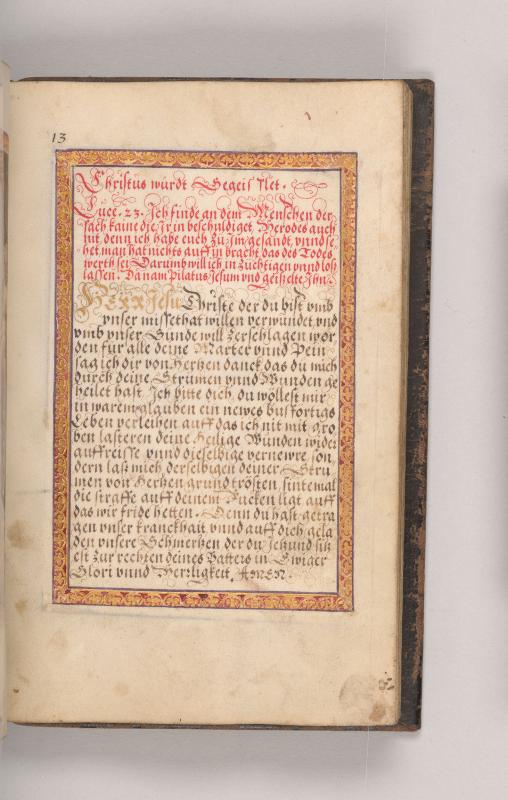 13
Christus würdt Gegeißlet.
Luce. 23. Ich finde an dem Menschen der
sach kaine die Ir in beschuldiget, Herodes auch
nit, denn ich habe euch zu Im gesandt, vnnd se
het, man hat nichts auff in bracht das des Todes
werth sei, Darumb will ich in züchtigen vnnd loß
lassen. Da nam Pilatus Jesum vnd geißelte Ihn.
HERR Jesu Christe der du bist vmb
vnser missethat willen verwundet vnd
vmb vnser Sünde will zerschlagen wor
den für alle deine Marter vnnd Pein
sag ich dir von Hertzen danck das du mich
durch deine Strumen vnnd Wunden ge
heilet hast. Ich bitte dich, du wöllest mir
in warem glauben ein newes bußfertigs
Leben verleihen auff das ich nit mit gro
ben lasteren deine Heilige Wunden wider
auffreisse vnnd dieselbige vernewre, son
dern laß mich derselbigen deiner Stru
men von Hertzen grund trösten, sintemal
die straffe auff deinem Nacken ligt auff
das wir fride hetten. Denn du hast getra
gen vnser kranckhait vnnd auff dich gela
den vnsere Schmertzen der du jetzund sitz
est zur rechten deines Vatters in Ewiger
Glori vnnd Herrligkeit, AMEN.